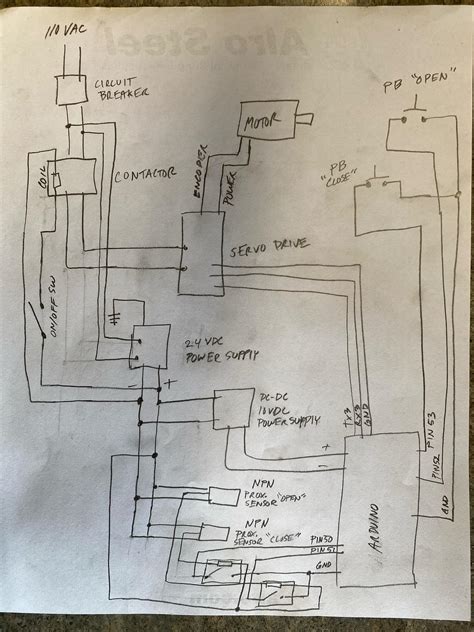 110 VAC
Alro Steel
CIRCUIT
BREAKER
PB "OPEN"
MOTOR
COIL
CONTACTOR
ENCODER
POWER
PB
"CLOSE"
SERVO DRIVE
ON/OFF SW
24 VDC
POWER SUPPLY
+
-
DC-DC
10VDC
POWER SUPPLY
TXD
RXD
GND
PIN 53
PIN52
GND
+
-
ARDUINO
NPN
PROX.
SENSOR "OPEN"
NPN
PROX.
SENSOR "CLOSE"
PIN50
GND